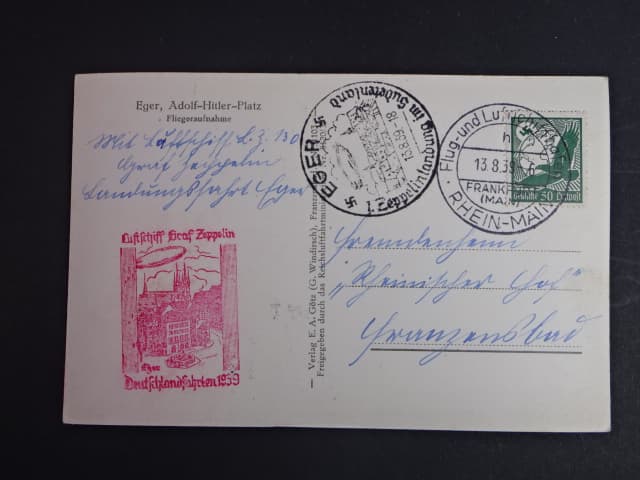 Eger, Adolf-Hitler-Platz
Fliegeraufnahme
Mit Luftschiff L.Z. 130
Graf Zeppelin
Landungsfahrt Eger
Luftschiff Graf Zeppelin
Eger
Deutschlandfahrten 1939
— Verlag E. A. Götz (G. Windirsch), Franzens
Freigegeben durch das Reichsluftfahrtmin
EGER
1. Zeppelinlandung im Sudetenland
13.8.39-18
Flug- und Luftschiffhafen
h
13.8.39
FRANKFURT
(MAIN)
RHEIN-MAIN
50
Fremdenheim
"Rheinischer Hof"
Franzensbad